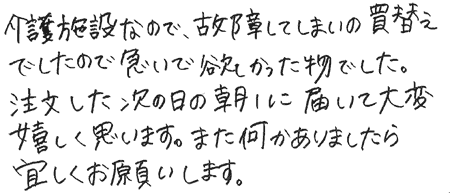 介護施設なので、故障してしまいの買替え
でしたので急いで欲しかった物でした。
注文した次の日の朝に届いて大変
嬉しく思います。また何かありましたら
宜しくお願いします。